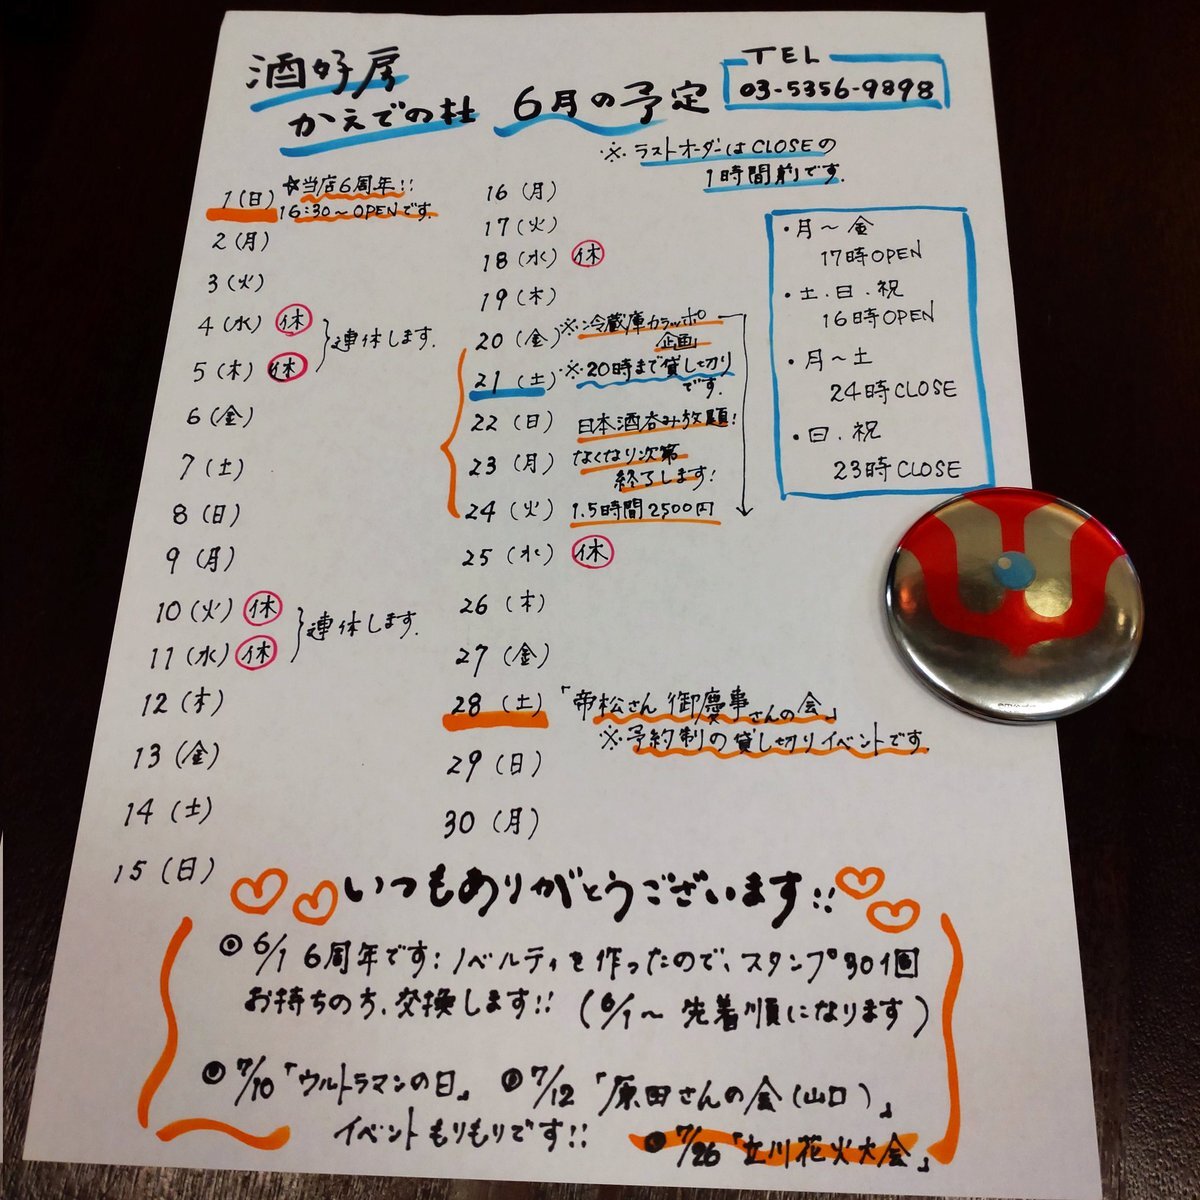 酒好房
かえでの杜 6月の予定
TEL
03-5356-9898
※ラストオーダーはCLOSEの
1時間前です.
1(日) ☆当店6周年!!
16:30〜OPENです.
2(月)
3(火)
4(水) 休
5(木) 休
連休します.
6(金)
7(土)
8(日)
9(月)
10(火) 休
11(水) 休
連休します.
12(木)
13(金)
14(土)
15(日)
16(月)
17(火)
18(水) 休
19(木)
20(金) ※冷蔵庫カラッポ
企画
21(土) ※20時まで貸し切り
です.
22(日) 日本酒呑み放題!
23(月) なくなり次第
終了します!
24(火) 1.5時間2500円
25(水) 休
26(木)
27(金)
28(土) 「帝松さん御慶事さんの会」
※予約制の貸し切りイベントです.
29(日)
30(月)
・月〜金
17時OPEN
・土.日.祝
16時OPEN
・月〜土
24時CLOSE
・日.祝
23時CLOSE
いつもありがとうございます!!
6/1 6周年です!ノベルティを作ったので、スタンプ30個
お持ちの方、交換します!! (6/1〜先着順になります)
7/10「ウルトラマンの日」 7/12「原田さんの会(山口)」
イベントもりもりです!! 7/26「立川花火大会」